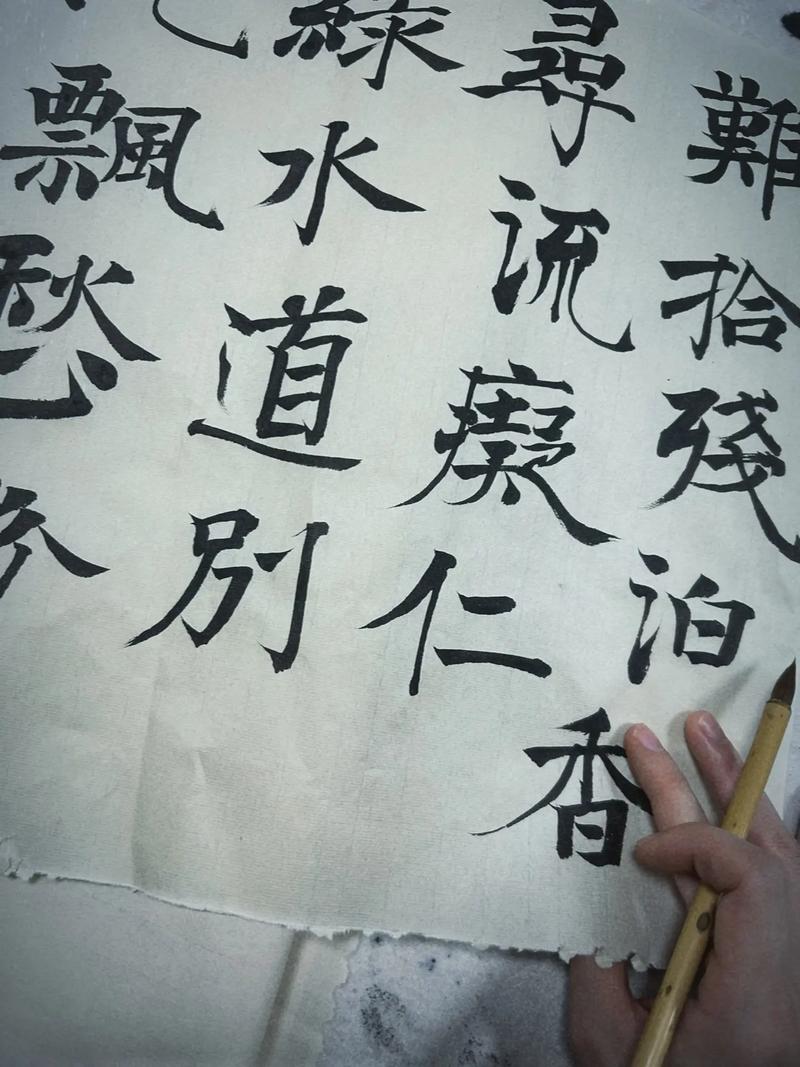 難拾殘泊香
尋流癡仁
綠水道別
飄愁